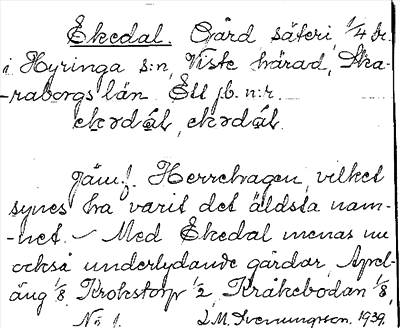 Ekedal. Gård säteri, 1/4 br.
i Hyringa s:n, Viste härad, Ska-
-raborgs län. Ett j.b. n:r.
Jämf. Herrehagen, vilket
synes ha varit det äldsta nam-
-net. - Med Ekedal menas nu
också underlydande gårdar, Apel-
äng 1/8, Krokstorp 1/2, Kråkebodan 1/8,
No 1. J.M. Svenungson, 1939.